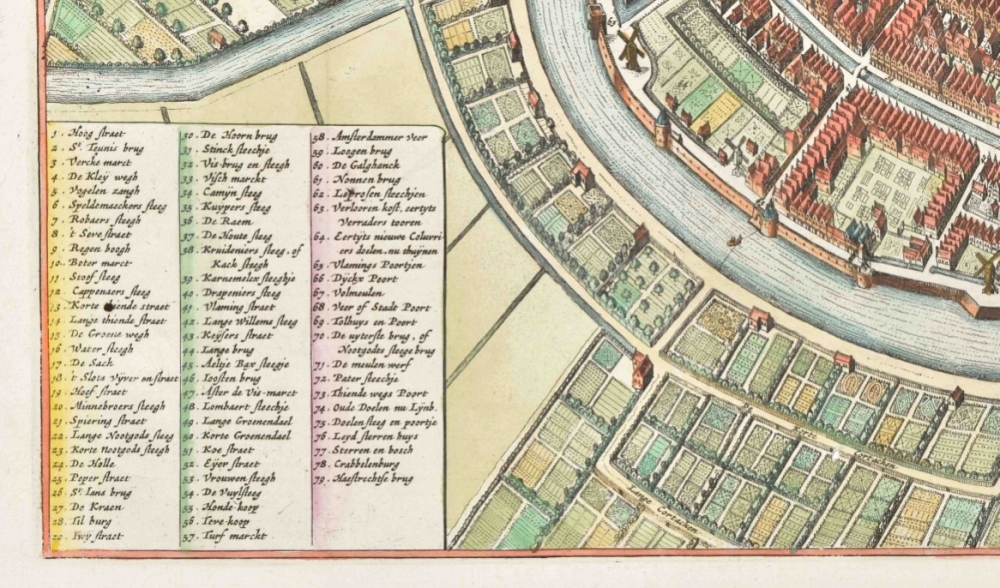 1. Hoog straet
2. St. Teunis brug
3. Vercke marct
4. De Kley wegh
5. Vogelen zangh
6. Speldemaeckers steeg
7. Robaers steegh
8. 't Seve straet
9. Regen boogh
10. Boter marct
11. Stoof steeg
12. Cappenaers steeg
13. Korte thiende straet
14. Lange thiende straet
15. De Groene wegh
16. Water steegh
17. De Sack
18. 't Slots Vyver en straet
19. Hoef straet
20. Minnebroers steegh
21. Spiering straet
22. Lange Nootgods steeg
23. Korte nootgods steegh
24. De Halle
25. Peper straet
26. St. Ians brug
27. De Kraen
28. Til burg
29. straet
30. De Hoorn brug
31. Stinck steechje
32. Vis-brug en steegh
33. Visch marckt
34. Camyn steeg
35. Kuypers steeg
36. De Raem
37. De Houte steeg
38. Kruideniers steeg, of
Kack steegh
39. Karnemelcx steeghje
40. Drapeniers steeg
41. Vlaming straet
42. Lange Willems steeg
43. Keysers straet
44. Lange brug
45. Aeltje Bax steegje
46. Ioosten brug
47. After de Vis-marct
48. Lombaert steechje
49. Lange Groenendael
50. Korte Groenendael
51. Koe straet
52. Eyer straet
53. Vrouwen steegh
54. De Vuylsteeg
55. Honde-koop
56. Teve-koop
57. Turf marckt
58. Amsterdammer veer
59. Loogen brug
60. De Galghenck
61. Nonnen brug
62. Leprosen steechjen
63. Verlooren kost, eertyts
Verraders tooren
64. Eertyts nieuwe Colvri-
ers doelen, nu thuynen
65. Vlamings Poortjen
66. Dyckx Poort
67. Volmeulen
68. Veer of Stadt Poort
69. Tolhuys en Poort
70. De uyterste brug, of
Nootgodts steege brug
71. De meulen werf
72. Pater steechje
73. Thiende wegs Poort
74. Oude Doelen nu Lynb.
75. Doelen steeg en poortje
76. Loyd sterren huys
77. Sterren en bosch
78. Crabbelenburg
79. Haestrechtse brug
63
Lange